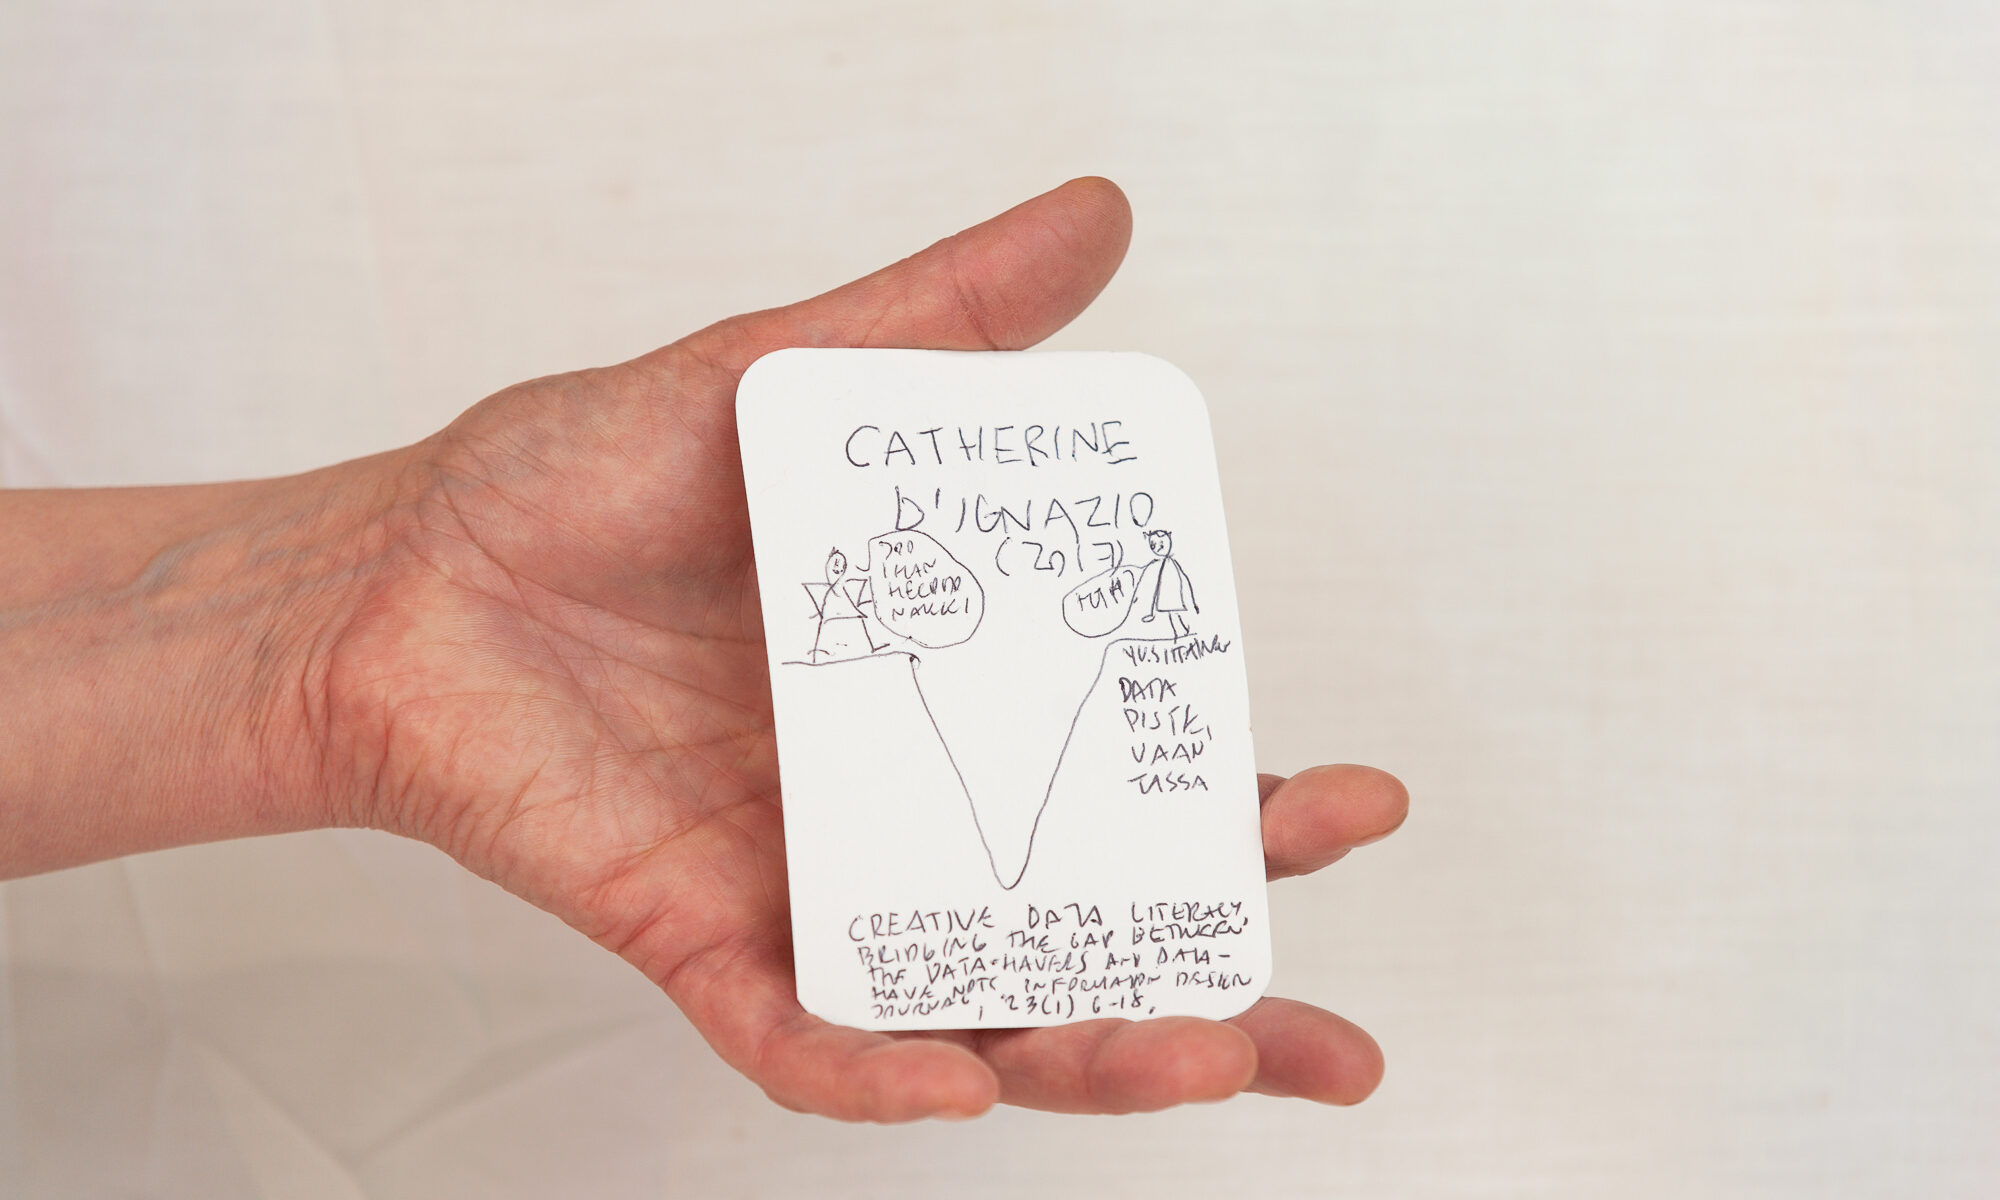 CATHERINE
D'IGNAZIO
(2017)
JOO
IHAN
HELPPO
NAKKI
HÄH?
YKSITTÄINEN
DATA
PISTE,
VAAN
TÄSSÄ
CREATIVE DATA LITERACY,
BRIDGING THE GAP BETWEEN
THE DATA-HAVERS AND DATA-
HAVE NOTS INFORMATION DESIGN
JOURNAL, 23(1) 6-18.